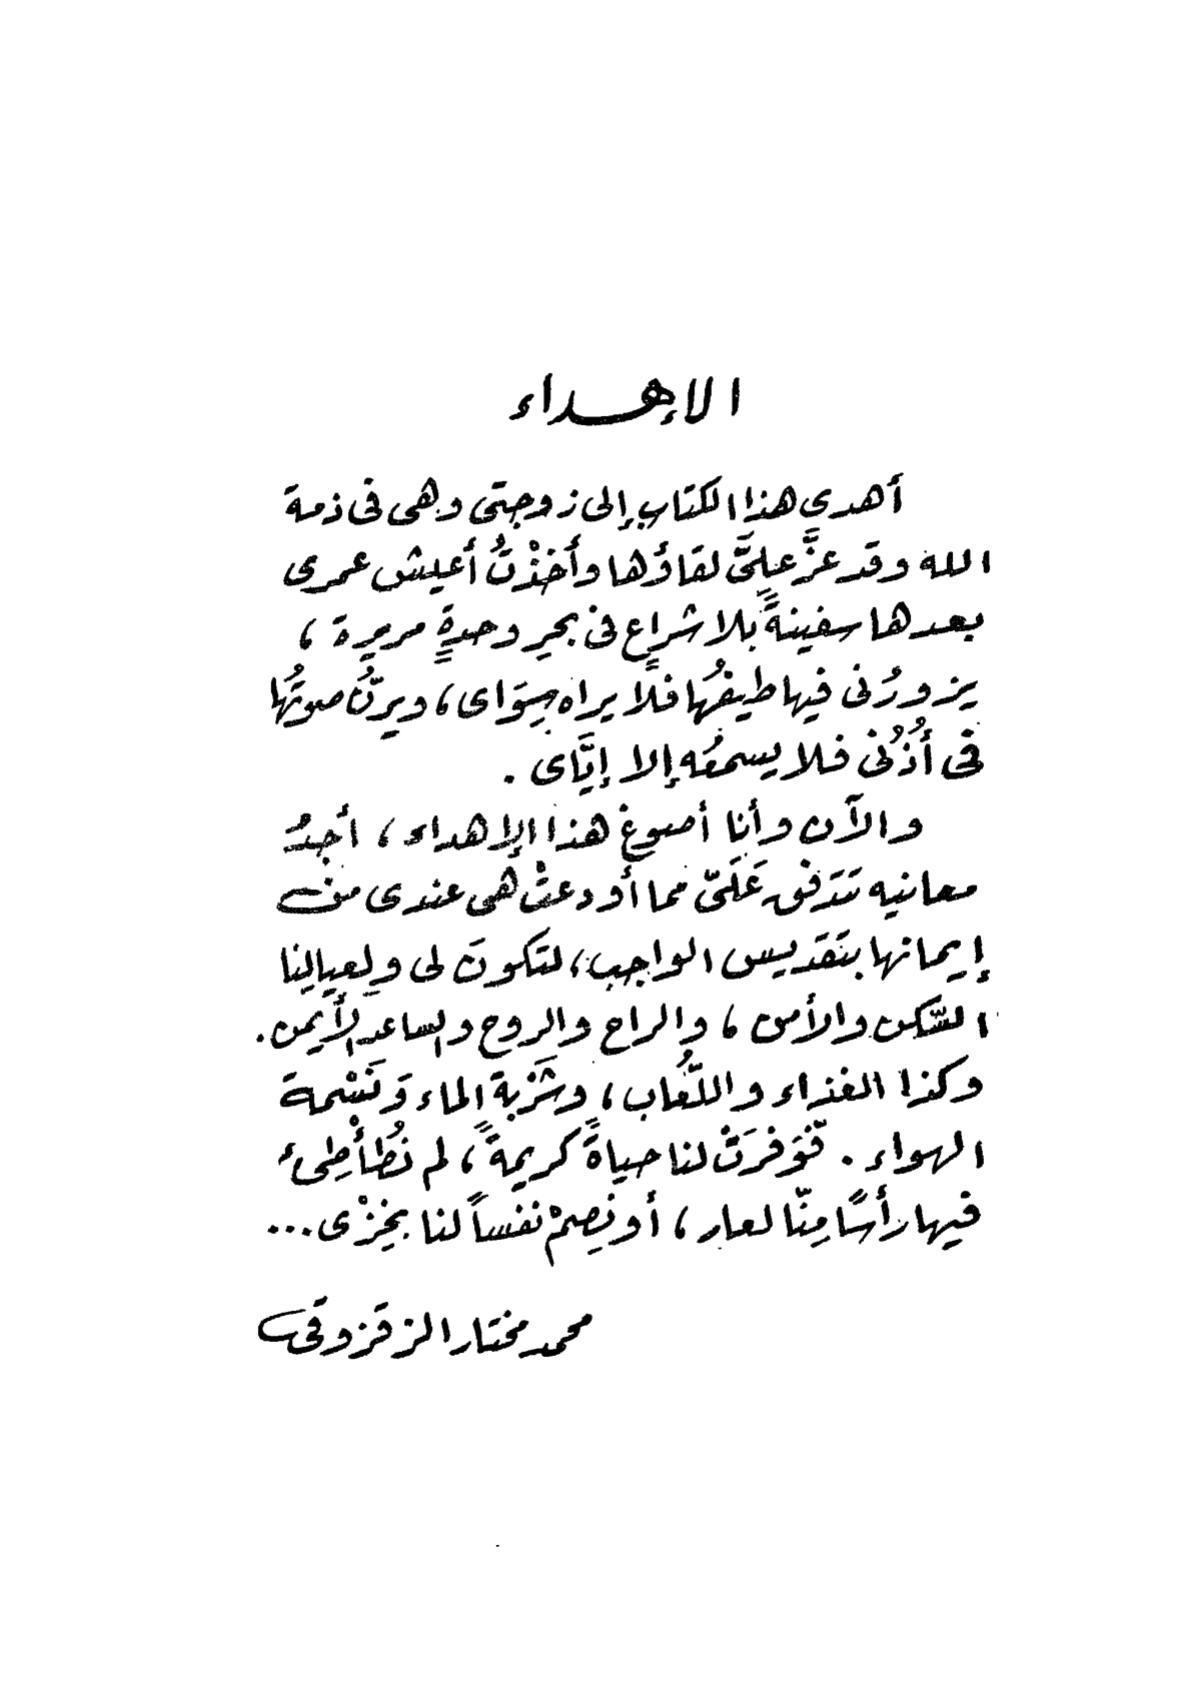 الإهداء
أهدى هذا الكتاب إلى زوجتى وهى فى ذمة
الله وقد عزَّ علىَّ لقاؤها وأخذْتُ أعيش عمرى
بعدها سفينةً بلا شراعٍ فى بحرِ وحدةٍ مريرة ،
يزورُنى فيها طيفُها فلا يراه سِوَاى ، ويرنُّ صوتُها
فى أُذُنى فلا يسمعُه إلا إيَّاى .
والآن وأنا أصوغ هذا الإهداء ، أجدُ
معانيه تَتَدفق عَلَىّ مما أودعتْ هى عندى من
إيمانها بتَقديس الواجب ، لتكونَ لى ولِعيالِنا
السَّكن والأمن ، والراح والروح والساعد الأَيمن .
وكذا الغذاء واللُّعاب ، وشَرْبة الماء وَنَسْمة
الهواء . فّوَفرَتْ لنا حياةً كريمةً ، لم نُطَأْطِئ
فيها رأسًا مِنّا لعار ، أو نَصِمْ نفساً لنا بخِزْى ...
محمد مختار الزقزوقى